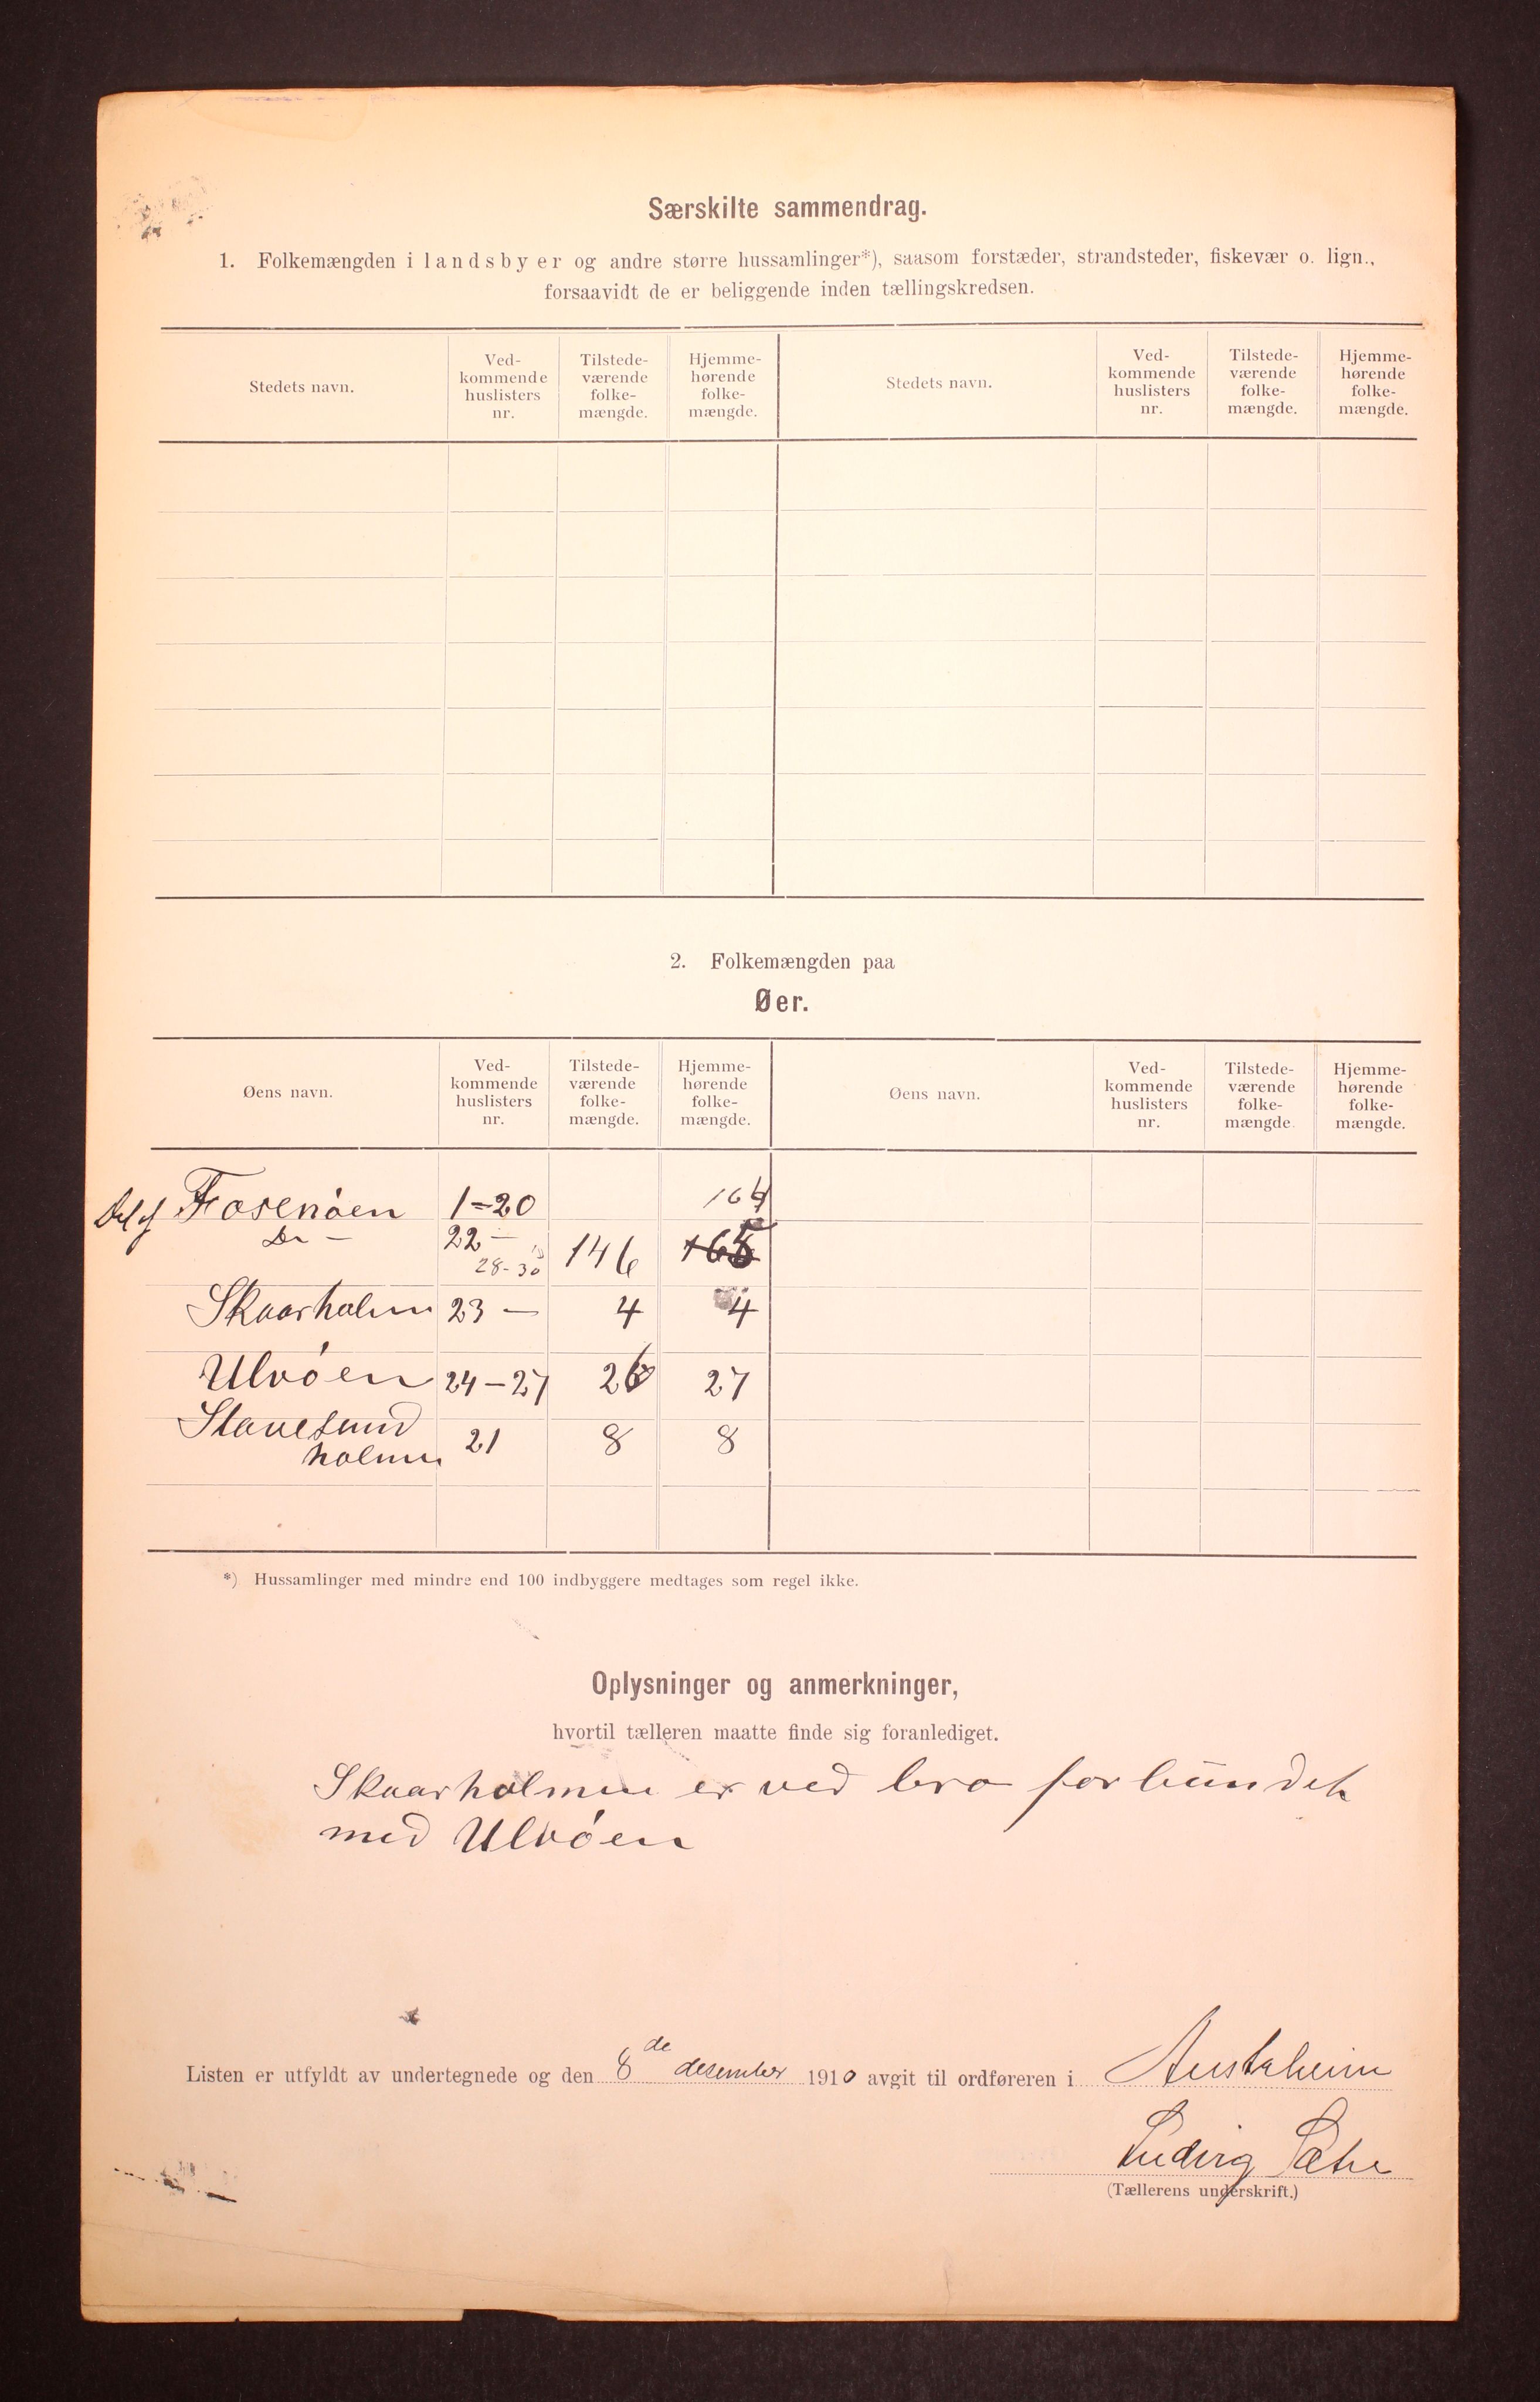 Særskilte sammendrag.
1. Folkemængden i landsbyer og andre større hussamlinger*), saasom forstæder, strandsteder, fiskevær o. lign.,
forsaavidt de er beliggende inden tællingskredsen.
Stedets navn. Ved-kommende huslisters nr. Tilstede-værende folke-mængde. Hjemme-hørende folke-mængde. Stedets navn. Ved-kommende huslisters nr. Tilstede-værende folke-mængde. Hjemme-hørende folke-mængde.
2. Folkemængden paa
Øer.
Øens navn. Ved-kommende huslisters nr. Tilstede-værende folke-mængde. Hjemme-hørende folke-mængde. Øens navn. Ved-kommende huslisters nr. Tilstede-værende folke-mængde Hjemme-hørende folke-mængde.
Del af Fosenøen 1-20 164
Do - 22 - 28-30 146 165
Skaarholm 23 - 4 4
Ulvøen 24-27 26 27
Stavesund
holmen 21 8 8
*) Hussamlinger med mindre end 100 indbyggere medtages som regel ikke.
Oplysninger og anmerkninger,
hvortil tælleren maatte finde sig foranlediget.
Skaarholmen er ved bro forbundet
med Ulvøen
Listen er utfyldt av undertegnede og den 8de desember 1910 avgit til ordføreren i Austrheim
Ludvig Sætre
(Tællerens underskrift.)